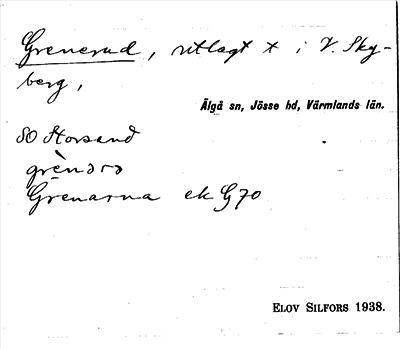 Grenerud, utlagt x i V. Sky-
berg,
Älgå sn, Jösse hd, Värmlands län.
SO Storsand
grènərə
Grenarna ek G 70
ELOV SILFORS 1938.